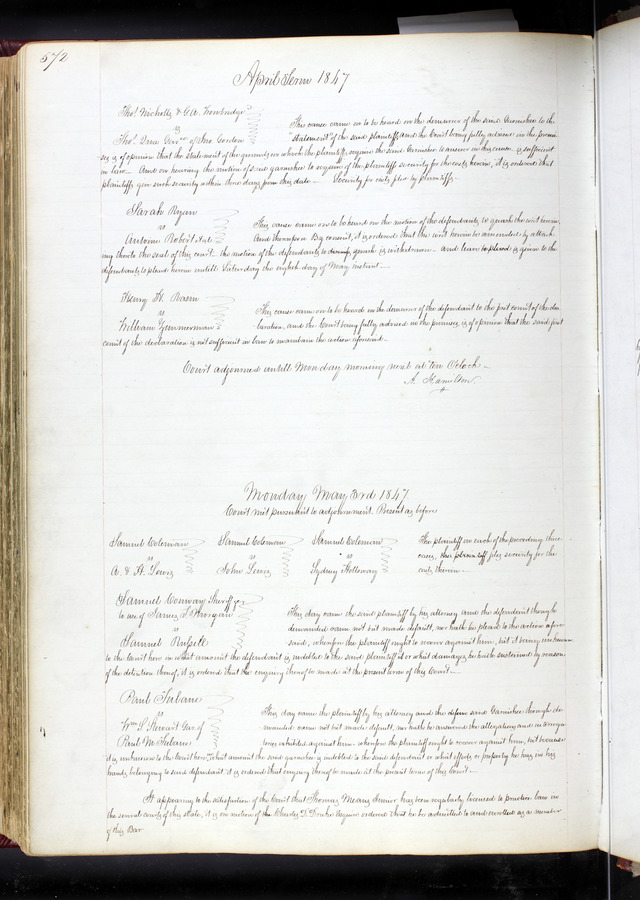 572
April Term 1847
Thos. Nicholls & G. A. Trowbridge
vs
Thos. Gordon
This cause came on to be heard on the demurrer of the said Garnishee to the
"statement" of the said plaintiffs, and the Court being fully advised in the premi-
ses is of opinion that the statement of the grounds on which the plaintiffs require the said Garnishee to answer in this cause, is sufficient
in law. And on hearing the motion of said garnishee to require of the plaintiffs security for the costs herein, it is ordered that
plaintiffs give such security within three days from this date. Security for costs filed by plaintiffs.
Sarah Ryan
vs
Antoine Robert
This cause came on to be heard on the motion of the defendants to quash the writ herein,
and thereupon By consent, it is ordered that the writ herein be amended by attach-
ing thereto the seal of this court. the motion of the defendants to quash is withdrawn. and leave is given to the
defendants to plead herein untill Saturday the eighth day of May instant.
Henry H. Bacon
vs
William Zimmerman
This cause came on to be heard on the demurrer of the defendant to the first count of the dec-
laration, and the Court being fully advised in the premises, is of opinion that the said first
count of the declaration is not sufficient in law to maintain the action aforesaid.
Court adjourned untill Monday morning next at ten Oclock
A. Hamilton
Monday May 3rd 1847
Court met pursuant to adjournment. Present as before
Samuel Coleman
vs
A. & H. Lewis
Samuel Coleman
vs
John Lewis
Samuel Coleman
vs
Sydney Holloway
The plaintiff in each of the preceding three
cases, files security for the
costs therein
Samuel Conway Sheriff &c
to use of James
vs
Samuel Russell
This day came the said plaintiff by his attorney and the defendant though
demanded came not but made default, nor hath he plead to the action afore-
said, wherefore the plaintiff ought to recover against him, but it being unknown
to the Court here in what amount the defendant is indebted to the said plaintiff or what damages he hath sustained by reason
of the detention thereof, it is ordered that the enquiry thereof be made at the present term of this Court
Paul
vs
Wm S. Stewart Gar. of
Paul M.
This day came the plaintiff by his attorney and the said Garnishee though de-
manded came not but made default, nor hath he answered the allegations and interroga-
tories exhibited against him. wherefore the plaintiff ought to recover against him, but because
it is unknown to the Court here in what amount the said garnishee is indebted to the said defendant or what effects or property he has, in his
hands, belonging to said defendant it is ordered that enquiry thereof be made at the present term of this Court
It appearing to the satisfaction of the Court that Thomas has been regularly licensed to practice law in
the several courts of this state, it is on motion of Charles D. Drake Esquire ordered that he be admitted to and enrolled as a member
of this Bar